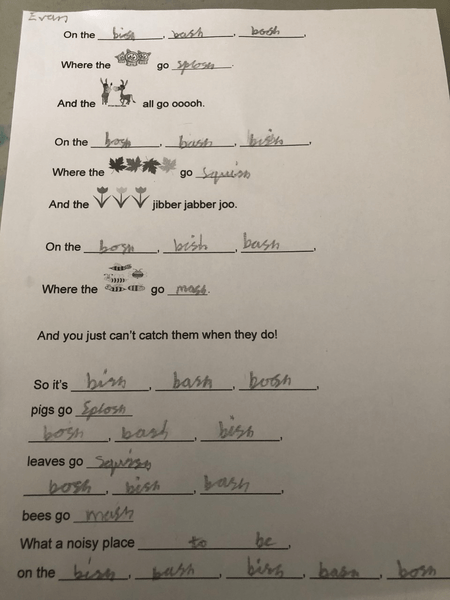 Evan
On the bish, bash, bosh,
Where the go splosh.
And the all go ooooh.
On the bosh, bash, bish,
Where the go squish
And the jibber jabber joo.
On the bosh, bish, bash,
Where the go mash.
And you just can't catch them when they do!
So it's bish, bash, bosh,
pigs go Splosh
bosh, bash, bish,
leaves go squish
bosh, bish, bash,
bees go mash
What a noisy place to be,
on the bish, bash, bish, bash, bosh